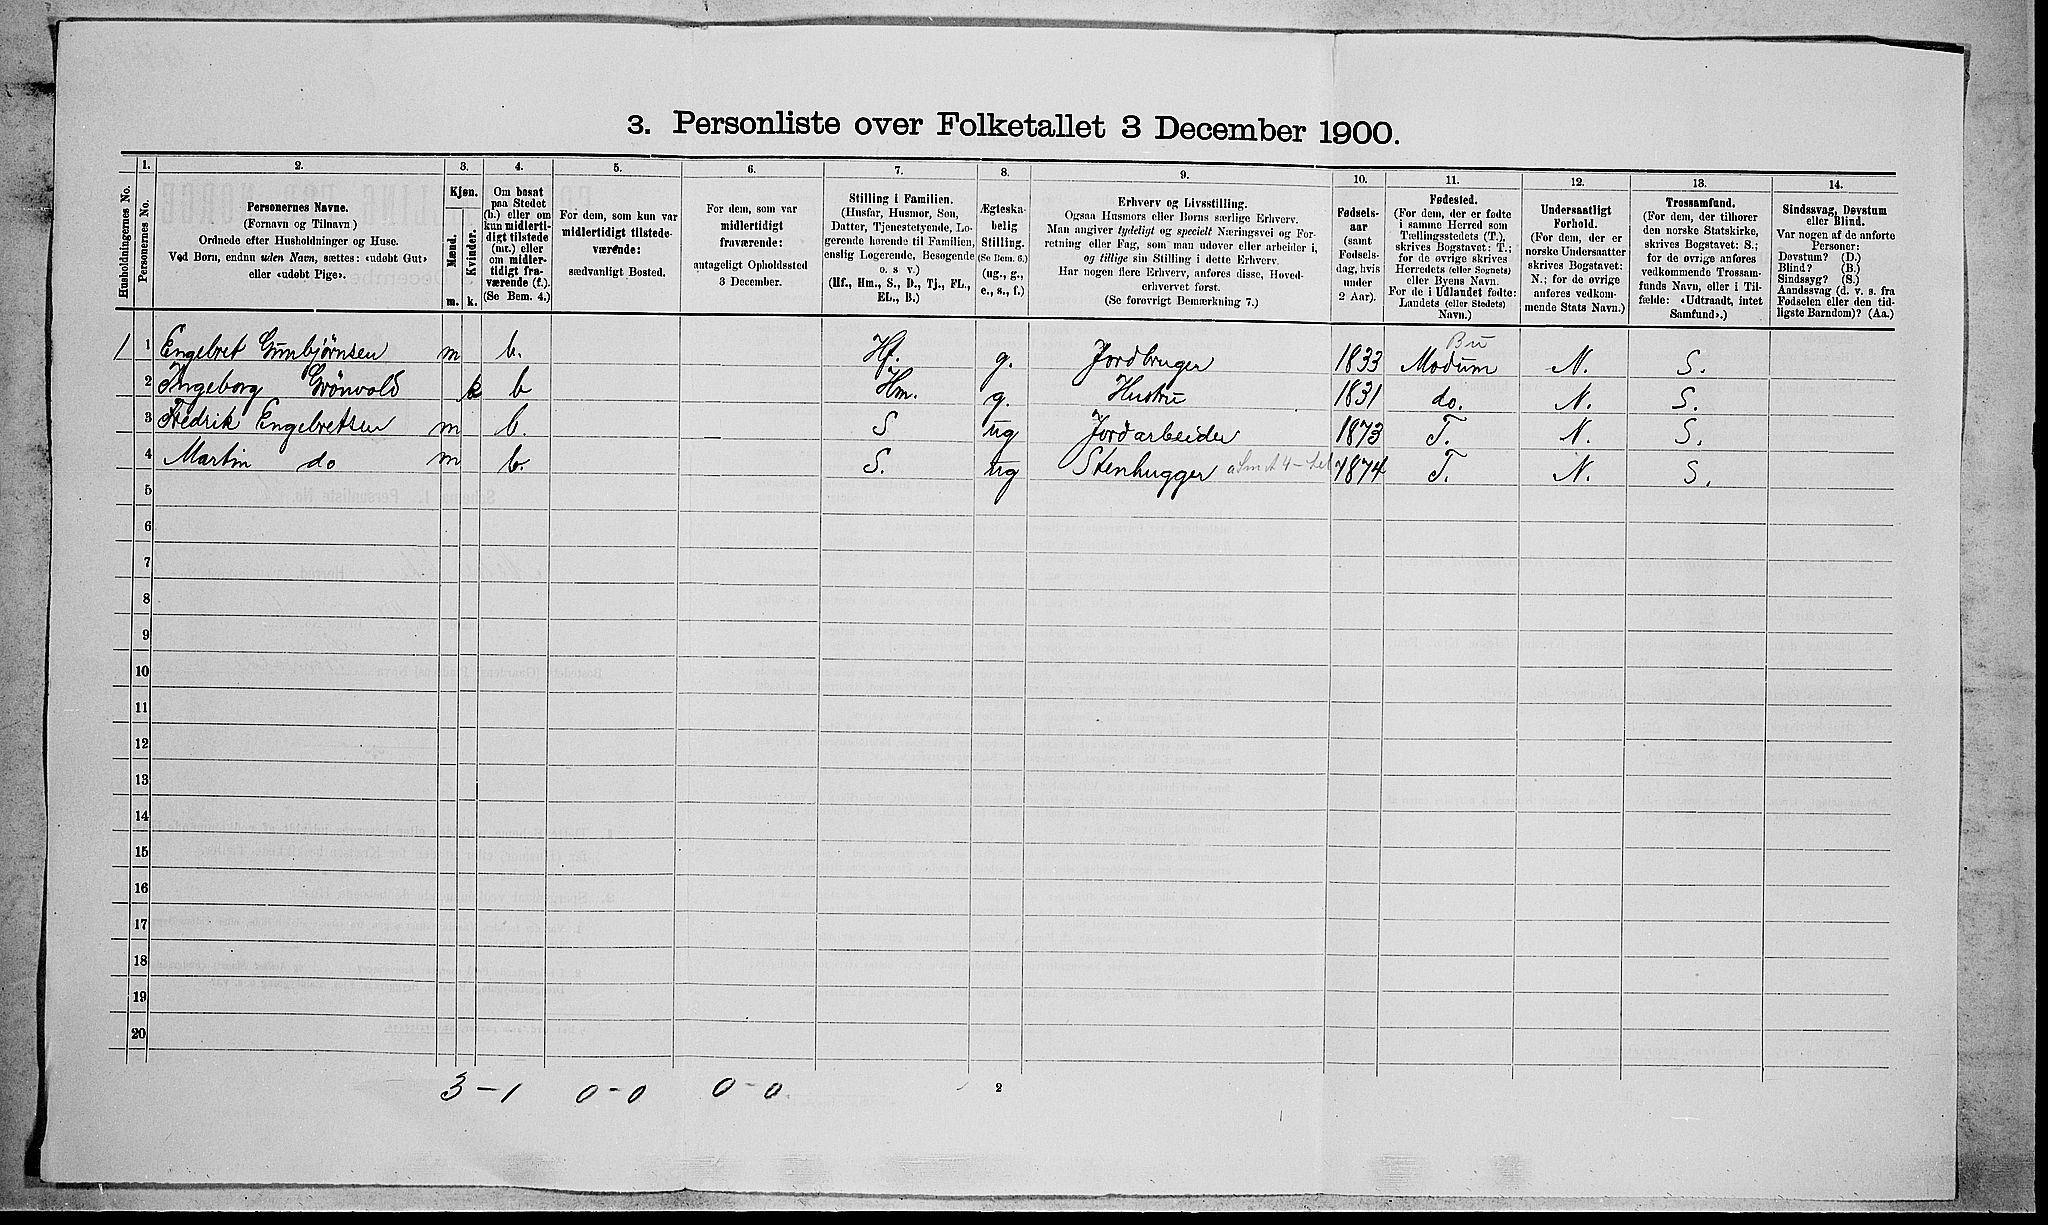 3. Personliste over Folketallet 3 December 1900.
1. 2. 3. 4. 5. 6. 7. 8. 9. 10. 11. 12. 13. 14.
Husholdningernes No.
Personernes No.
Personernes Navne.
(Fornavn og Tilnavn)
Ordnede efter Husholdninger og Huse.
Ved Børn, endnu uden Navn, sættes: «udøbt Gut»
eller «udøbt Pige».
Kjøn.
Mænd.
Kvinder.
m. k.
Om bosat
paa Stedet
(b.) eller om
kun midlerti-
digt tilstede
(mt.) eller
om midler-
tidigt fra-
værende (f.).
(Se Bem. 4.)
For dem, som kun var
midlertidigt tilstede-
værende:
sædvanligt Bosted.
For dem, som var
midlertidigt
fraværende:
antageligt Opholdssted
3 December.
Stilling i Familien.
(Husfar, Husmor, Søn,
Datter, Tjenestetyende, Lo-
gerende hørende til Familien,
enslig Logerende, Besøgende
o. s v.)
(Hf., Hm., S., D., Tj., FL.,
EL., B.)
Ægteska-
belig
Stilling.
(Se Bem. 6.)
(ug., g.,
e., s., f.)
Erhverv og Livsstilling.
Ogsaa Husmors eller Børns særlige Erhverv.
Man angiver tydeligt og specielt Næringsvei og For-
retning eller Fag, som man udøver eller arbeider i,
og tillige sin Stilling i dette Erhverv.
Har nogen flere Erhverv, anføres disse, Hoved-
erhvervet først.
(Se forøvrigt Bemærkning 7.)
Fødsels-
aar
(samt
Fødsels-
dag, hvis
under
2 Aar).
Fødested.
(For dem, der er fødte
i samme Herred som
Tællingsstedets (T.),
skrives Bogstavet: T.;
for de øvrige skrives
Herredets (eller Sognets)
eller Byens Navn.
For de i Udlandet fødte:
Landets (eller Stedets)
Navn.)
Undersaatligt
Forhold.
(For dem, der er
norske Undersaatter
skrives Bogstavet:
N.; for de øvrige
anføres vedkom-
mende Stats Navn.)
Trossamfund.
(For dem, der tilhører
den norske Statskirke,
skrives Bogstavet: S.;
for de øvrige anføres
vedkommende Trossam-
funds Navn, eller i Til-
fælde: «Udtraadt, intet
Samfund».)
Sindssvag, Døvstum
eller Blind.
Var nogen af de anførte
Personer:
Døvstum? (D.)
Blind? (B.)
Sindssyg? (S.)
Aandssvag (d. v. s. fra
Fødselen eller den tid-
ligste Barndom)? (Aa.)
Bu
1 1 Engebret Gunbjørnsen m b. Hf. g. Jordbruger 1833 Modum N. S.
2 Ingeborg Grönvold k b Hm. g. Hustru 1831 do. N. S.
3 Fredrik Engebretsen m b. S ug Jordarbeider 1873 T. N. S.
4 Martin do m b. S. ug Stenhugger 1874 T. N. S.
5
6
7
8
9
10
11
12
13
14
15
16
17
18
19
20
3 - 1 0 - 0 0 - 0. 2